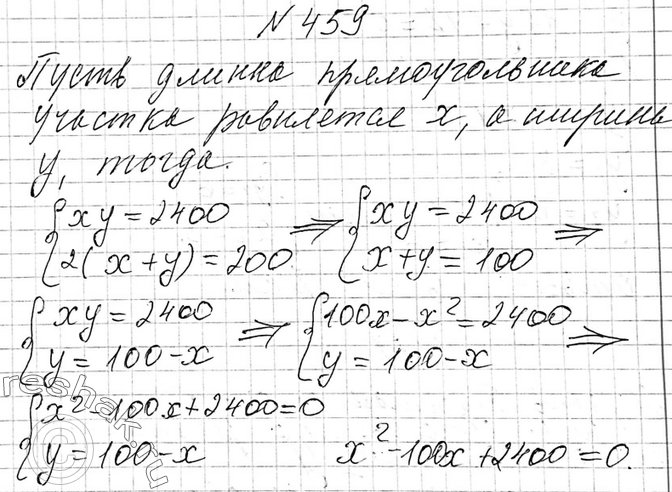 № 459
Пусть длинна прямоугольника
участка ровняется x, а ширина
y, тогда.
{xy = 2400 {xy = 2400
{2(x+y) = 200 ⇒ {x+y = 100 ⇒
{xy = 2400 {100x - x² = 2400
{y = 100 - x ⇒ {y = 100 - x ⇒
{x² - 100x + 2400 = 0
{y = 100 - x x² - 100x + 2400 = 0.
reshak.ru